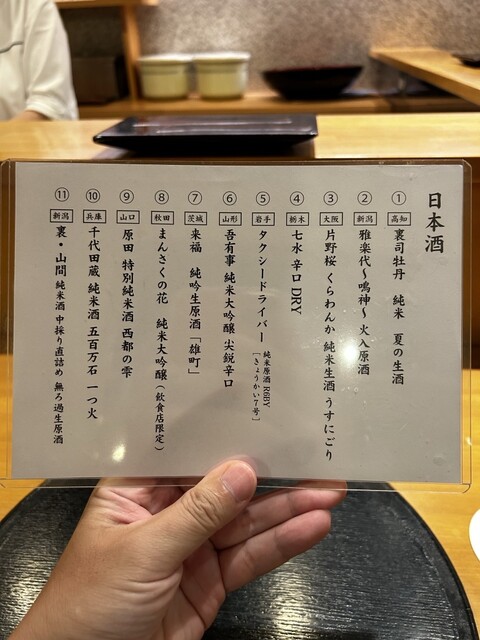 日本酒
① 高知 裏司牡丹 純米 夏の生酒
② 新潟 雅楽代〜鳴神〜 火入原酒
③ 大阪 片野桜 くらわんか 純米生酒 うすにごり
④ 栃木 七水 辛口 DRY
⑤ 岩手 タクシードライバー 純米原酒 R6BY
[きょうかい7号]
⑥ 山形 吾有事 純米大吟醸 尖鋭辛口
⑦ 茨城 来福 純吟生原酒「雄町」
⑧ 秋田 まんさくの花 純米大吟醸(飲食店限定)
⑨ 山口 原田 特別純米酒 西都の雫
⑩ 兵庫 千代田蔵 純米酒 五百万石 一つ火
⑪ 新潟 裏・山間 純米酒 中採り直詰め 無ろ過生原酒